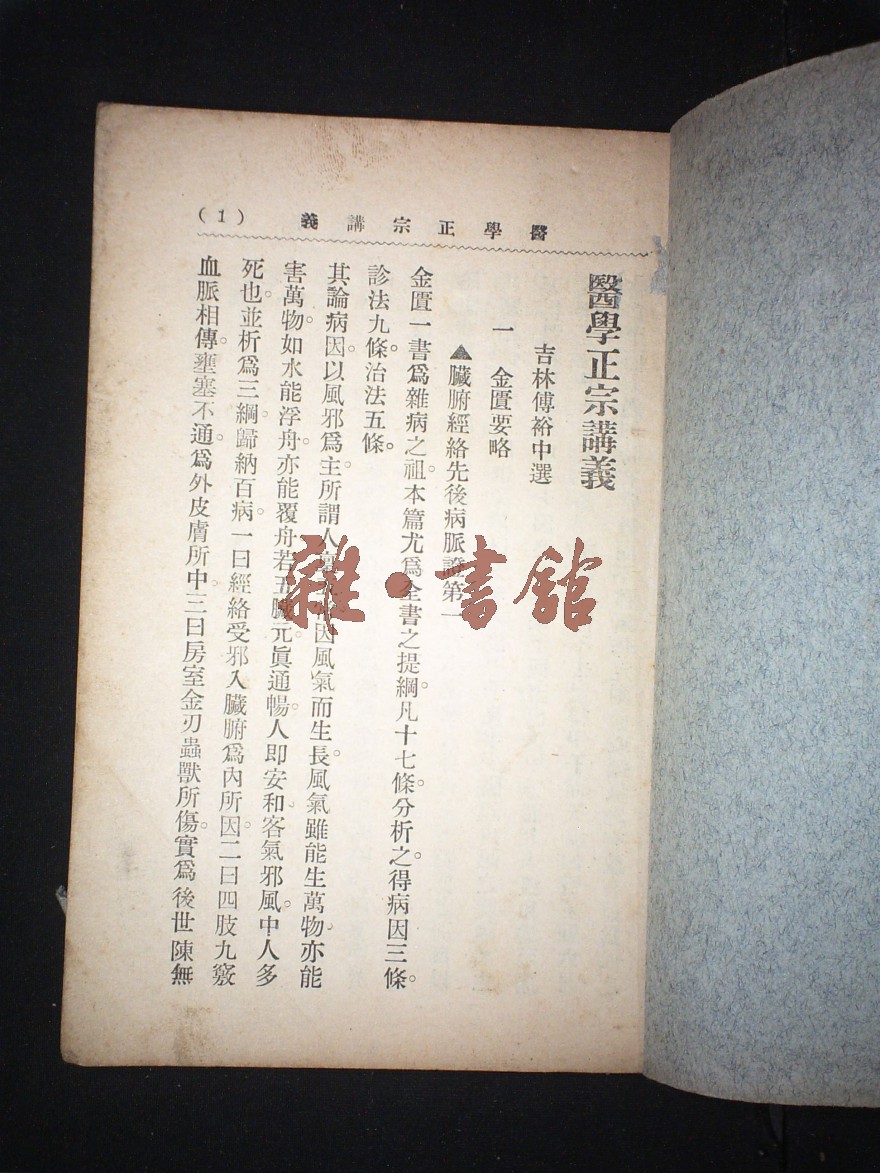 醫學正宗講義
(1)
醫學正宗講義
吉林傅裕中選
一 金匱要略
▲臟腑經絡先後病脈證第一
金匱一書爲雜病之祖。本篇尤爲全書之提綱。凡十七條。分析之。得病因三條。
診法九條。治法五條。
其論病因。以風邪爲主。所謂人因風氣而生長。風氣雖能生萬物。亦能
害萬物。如水能浮舟。亦能覆舟。若五臟元眞通暢。人即安和。客氣邪風。中人多
死也。並析爲三綱。歸納百病。一曰經絡受邪入臟腑爲內所因。二曰四肢九竅
血脈相傳。壅塞不通。爲外皮膚所中。三曰房室金刃蟲獸所傷。實爲後世陳無
雜·書館